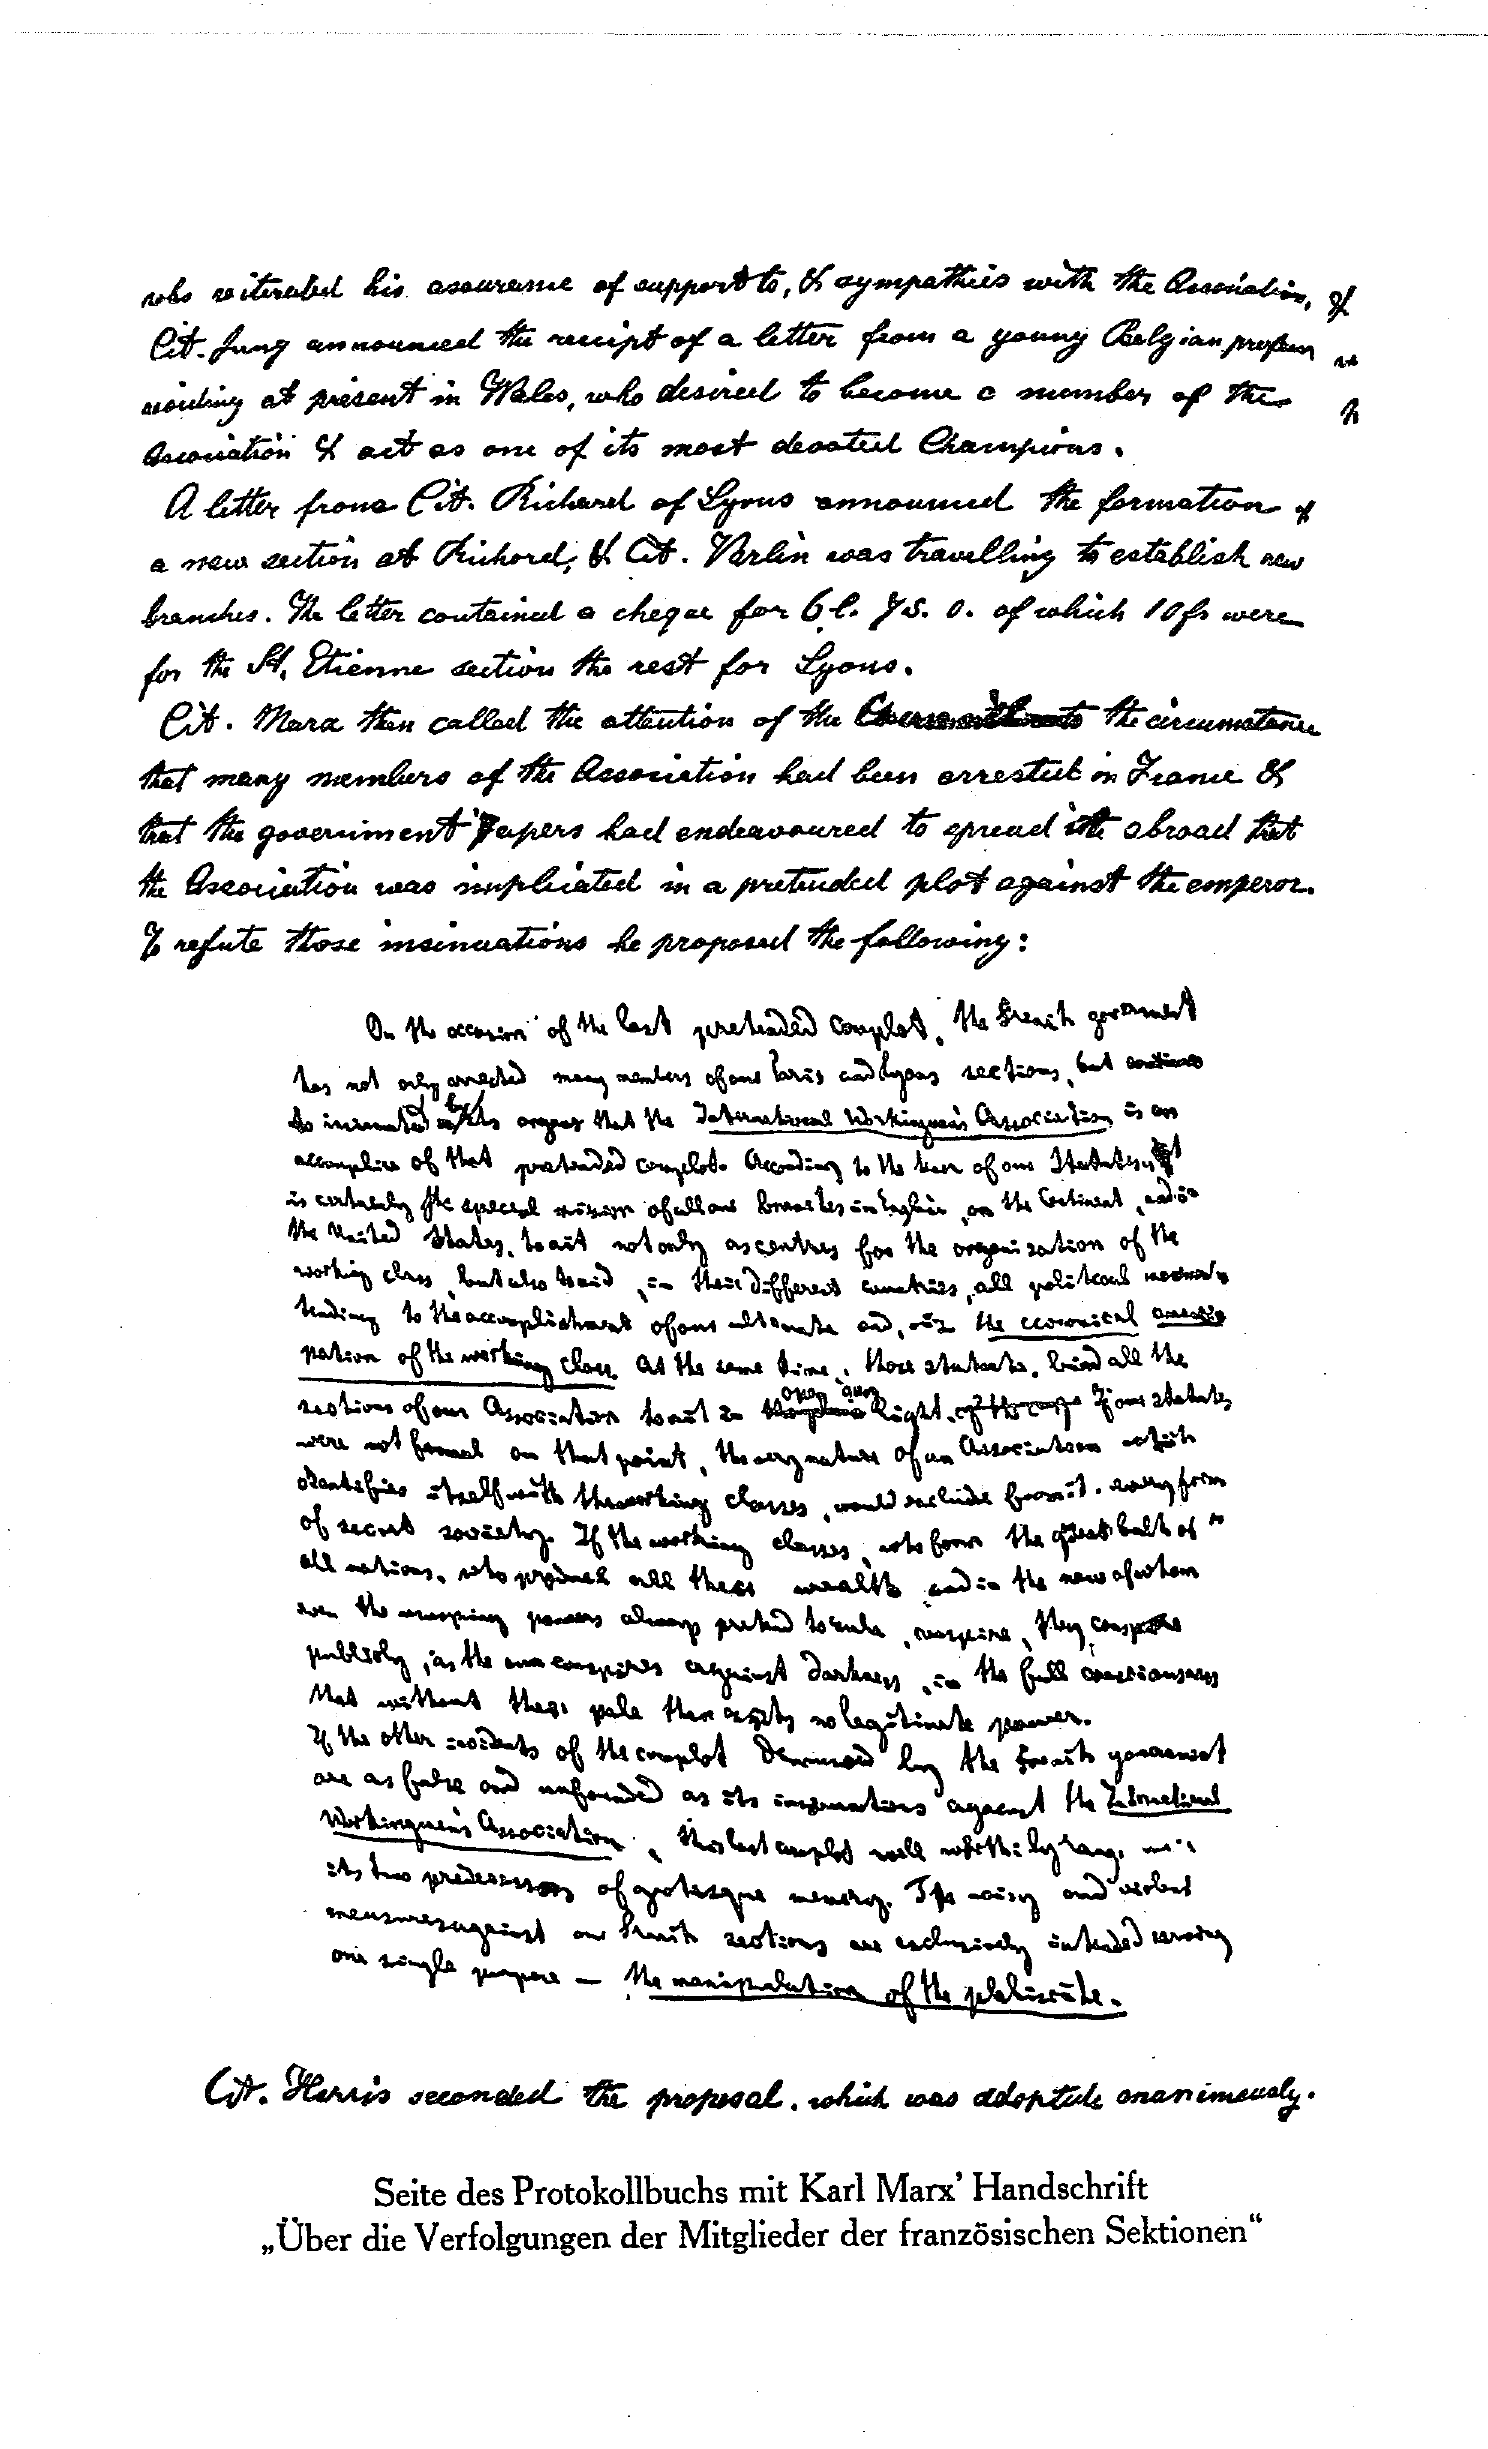 who reiterated his assurance of support to, & sympathies with the Association, &
Cit. Jung announced the receipt of a letter from a young Belgian professor
residing at present in Wales, who desired to become a member of the
Association & act as one of its most devoted Champions.
A letter from Cit. Richard of Lyons announced the formation of
a new section at Richard, & Cit. Varlin was travelling to establish new
branches. The letter contained a cheque for 6 l. 7 s. 0. of which 10 fs were
for the St. Etienne section the rest for Lyons.
Cit. Marx then called the attention of the the circumstance
that many members of the Association had been arrested in France &
that the government Papers had endeavoured to spread it abroad that
the Association was implicated in a pretended plot against the emperor.
To refute those insinuations he proposed the following:
On the occasion of the last pretended complot, the French government
has not only arrested many members of our Paris and Lyons sections, but
to insinuated by its organs that the International Workingmen's Association is an
accomplice of that pretended complot. According to the tenor of our Statutes, it
is certainly the special mission of all our branches in England, on the Continent, and in
the United States, to act not only as centres for the organisation of the
working class, but also to aid, in their different countries, all political movements
tending to the accomplishment of our ultimate end, viz the economical emanci
pation of the working class. At the same time, those statutes bind all the
sections of our Association to act in open day light. If our statutes
were not formal on that point, the very nature of an Association which
identifies itself with the working classes, would exclude from it every form
of secret society. If the working classes, who form the great bulk of
all nations, who produce all their wealth and in the name of whom
even the usurping powers always pretend to rule, conspire, they conspire
publicly, as the sun conspires against darkness, in the full consciousness
that without their pale there exists no legitimate power.
If the other incidents of the complot denounced by the French government
are as false and unfounded as its insinuations against the International
Workingmen's Association, this last complot will worthily range with
its two predecessors of grotesque memory. The noisy and violent
measures against our French sections are exclusively intended serving
one single purpose — the manipulation of the plebiscite.
Cit. Harris seconded the proposal, which was adopted unanimously.
Seite des Protokollbuchs mit Karl Marx’ Handschrift
„Über die Verfolgungen der Mitglieder der französischen Sektionen“